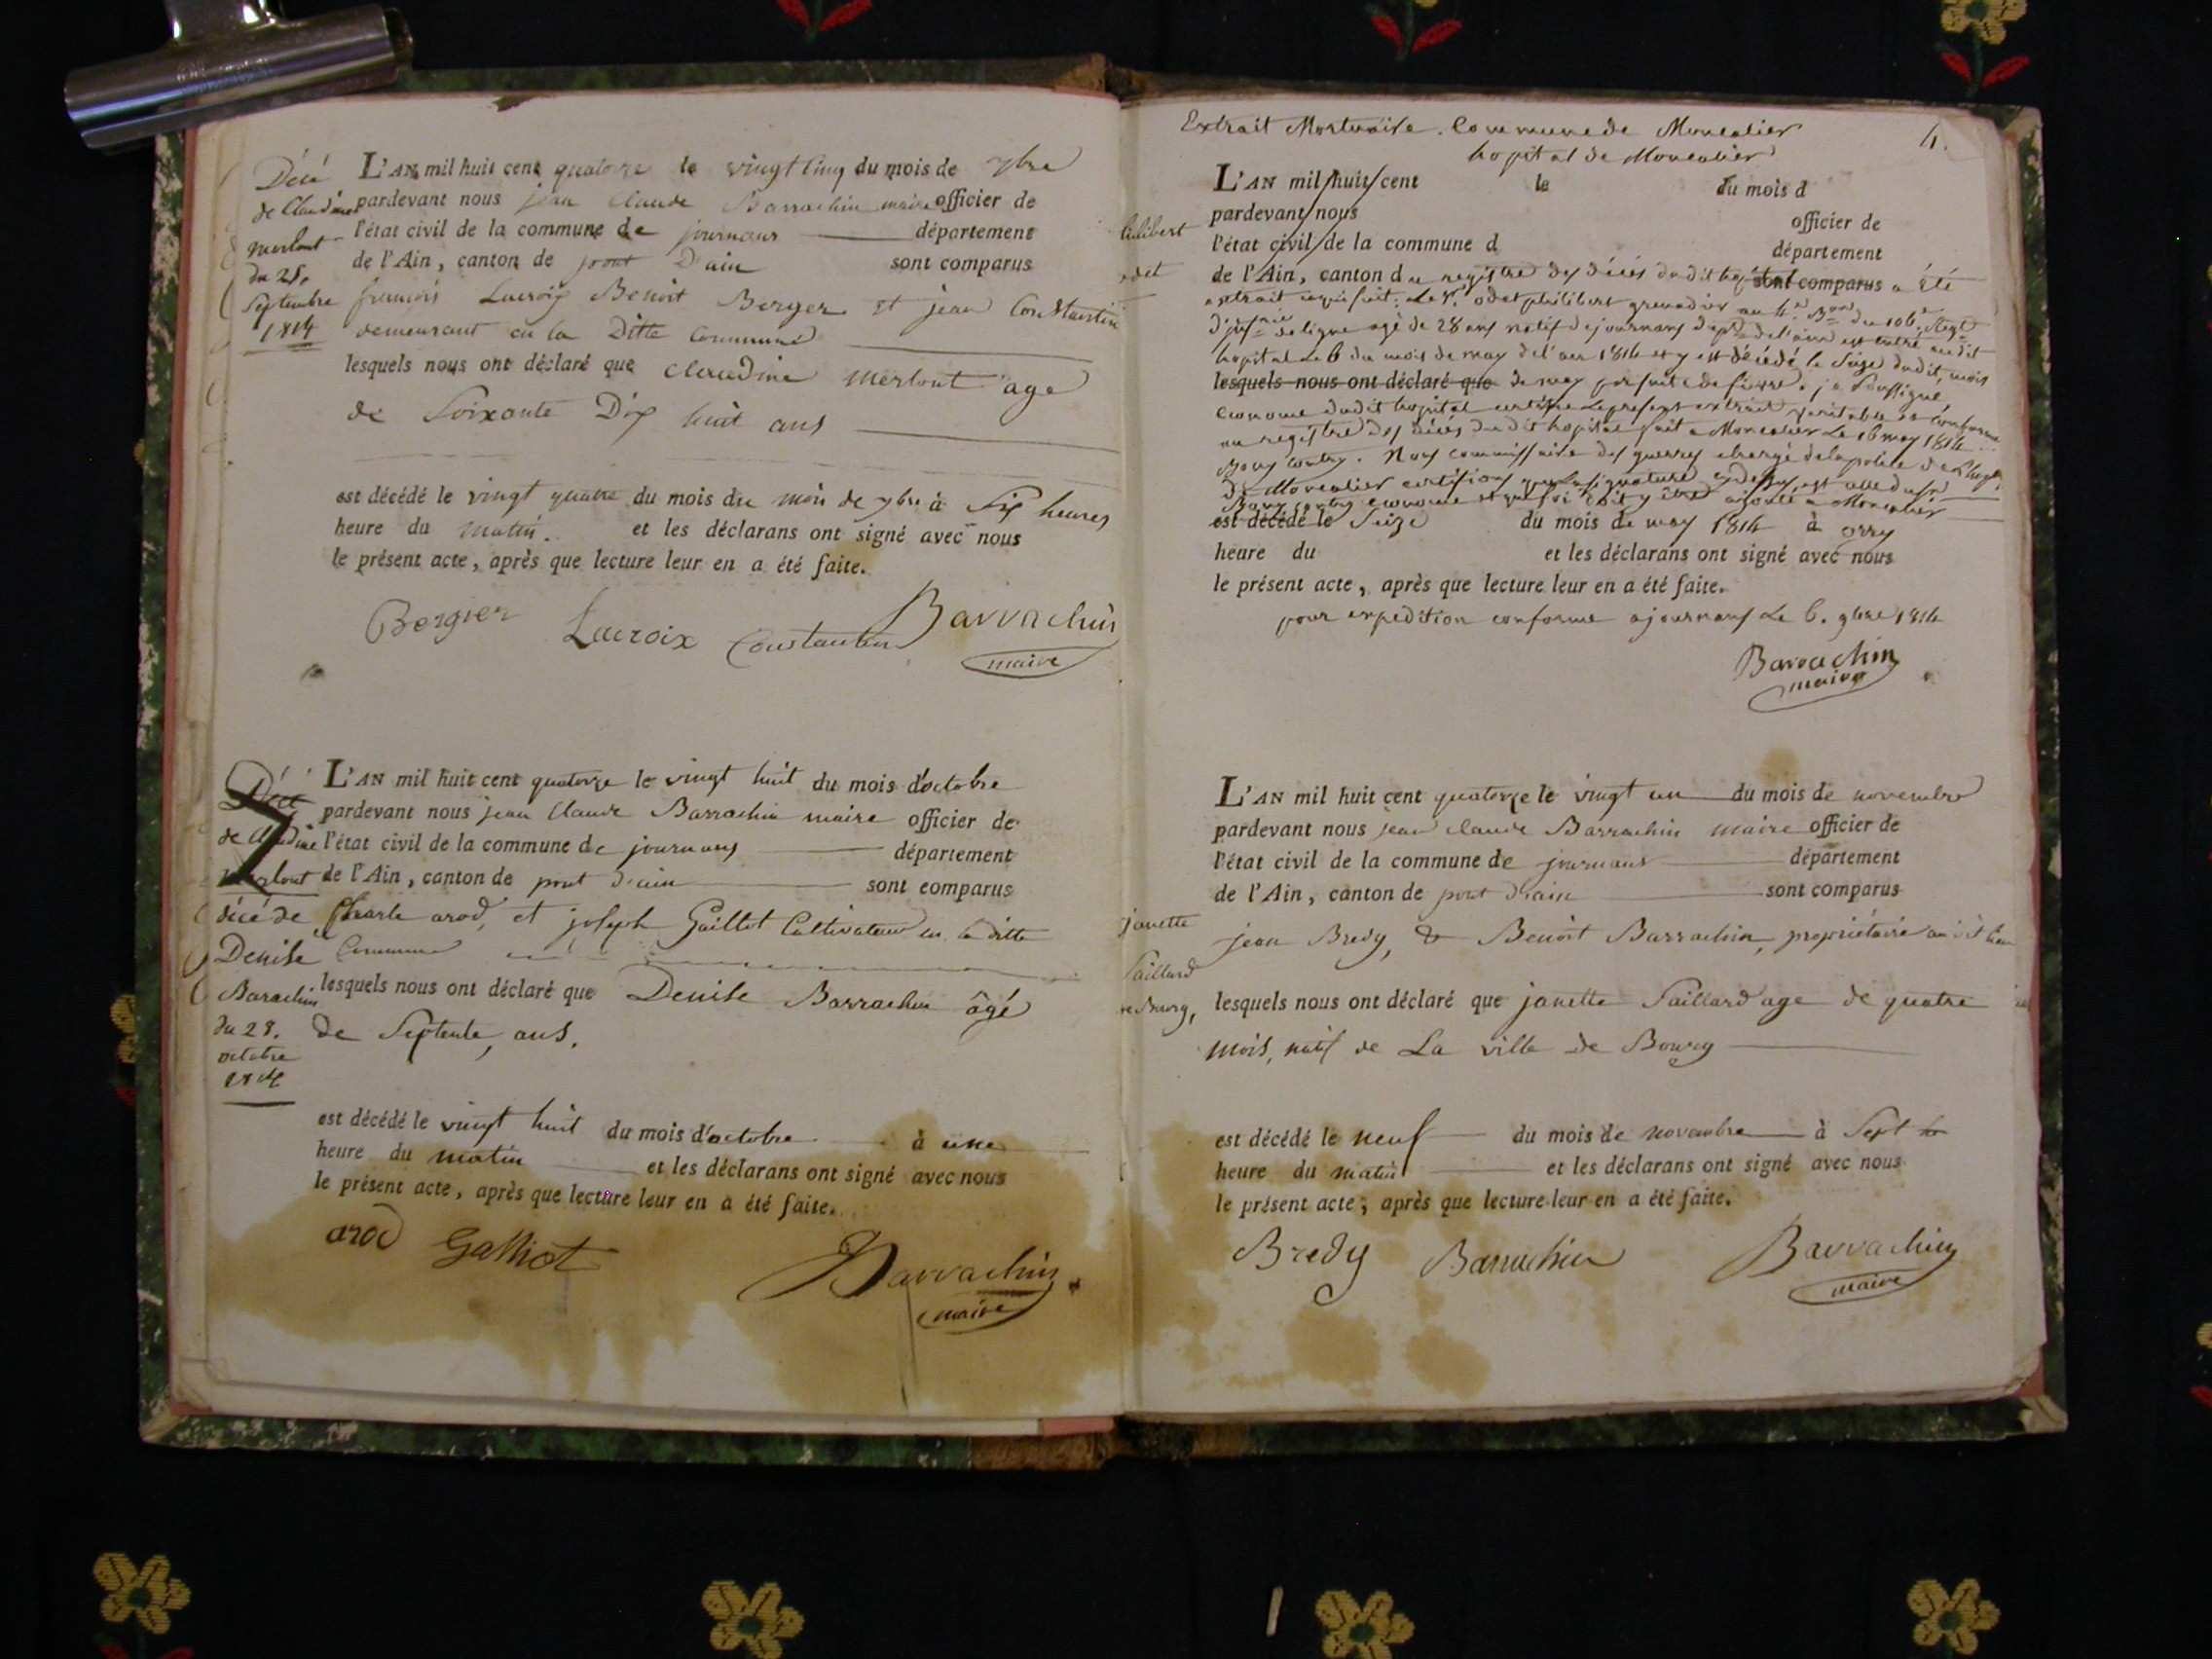 Décé
de Claudine
merlout
du 25.
Septembre
1814
L'AN mil huit cent quatorze le vingt cinq du mois de 7bre
pardevant nous jean Claude Barrachin maire officier de
l'état civil de la commune de journans département
de l'Ain, canton de pont D'ain sont comparus
françois Lacroix Benoit Berger et jean Constantin
demeurant en la Ditte Commune
lesquels nous ont déclaré que claudine merlout age
de Soixante Dix huit ans
est décédé le vingt quatre du mois du mois de 7bre à Six heures
heure du matin. et les déclarans ont signé avec nous
le présent acte, après que lecture leur en a été faite.
Bergier Lacroix Constantin Barrachin
maire
Décé
de Claudine
merlout
décé de
Denise
Barachin
du 28.
octobre
1814
L'AN mil huit cent quatorze le vingt huit du mois d'octobre
pardevant nous jean Claude Barrachin maire officier de
l'état civil de la commune de journans département
de l'Ain, canton de pont d'ain sont comparus
Charle arod, et joseph Gaillot Cultivateur en la ditte
Commune
lesquels nous ont déclaré que Denise Barrachin âgé
de Septente, ans.
est décédé le vingt huit du mois d'octobre à une
heure du matin et les déclarans ont signé avec nous
le présent acte, après que lecture leur en a été faite.
arod Galliot Barrachin
maire
Extrait Mortuaire. Commune de Moncalier 4.
hopital de Moncalier
L'AN mil huit cent le du mois d
pardevant nous officier de
l'état civil de la commune d département
de l'Ain, canton du registre des décés dudit hopital sont comparus a été
extrait ce qui suit. Le Sr. odet philibert grenadier au 4e. Bon du 106e. Regt
d'infrie de ligne agé de 28 ans natif de journans dept de l'ain est entré audit
hopital le 6 du mois de may de l'an 1814 et y est décédé le Seize dudit mois
lesquels nous ont déclaré que de may par suite de fievre. je Soussigné
econome dudit hopital certifie le present extrait veritable et conforme
au registre des décés du dit hopital fait a Moncalier Le 16 may 1814
Nous commissaire des guerres chargé de la police de l'hopl.
de Moncalier certifions que la signature cy dessus est celle du Sr
econome et que foi doit y être ajouté a Moncalier
est décédé le Seize du mois de may 1814 à orry
heure du et les déclarans ont signé avec nous
le présent acte, après que lecture leur en a été faite.
pour expedition conforme a journans Le 6. 9bre 1814
Barrachin
maire
janette
Paillard
de Bourg,
L'AN mil huit cent quatorze le vingt un du mois de novembre
pardevant nous jean claude Barrachin maire officier de
l'état civil de la commune de journans département
de l'Ain, canton de pont d'ain sont comparus
jean Bredy, & Benoit Barrachin, propriétaire au dit lieu
lesquels nous ont déclaré que janette Paillard age de quatre
mois, natif de La ville de Bourg
est décédé le neuf du mois de novembre à Sept
heure du matin et les déclarans ont signé avec nous
le présent acte, après que lecture leur en a été faite.
Bredy Barrachin Barrachin
maire